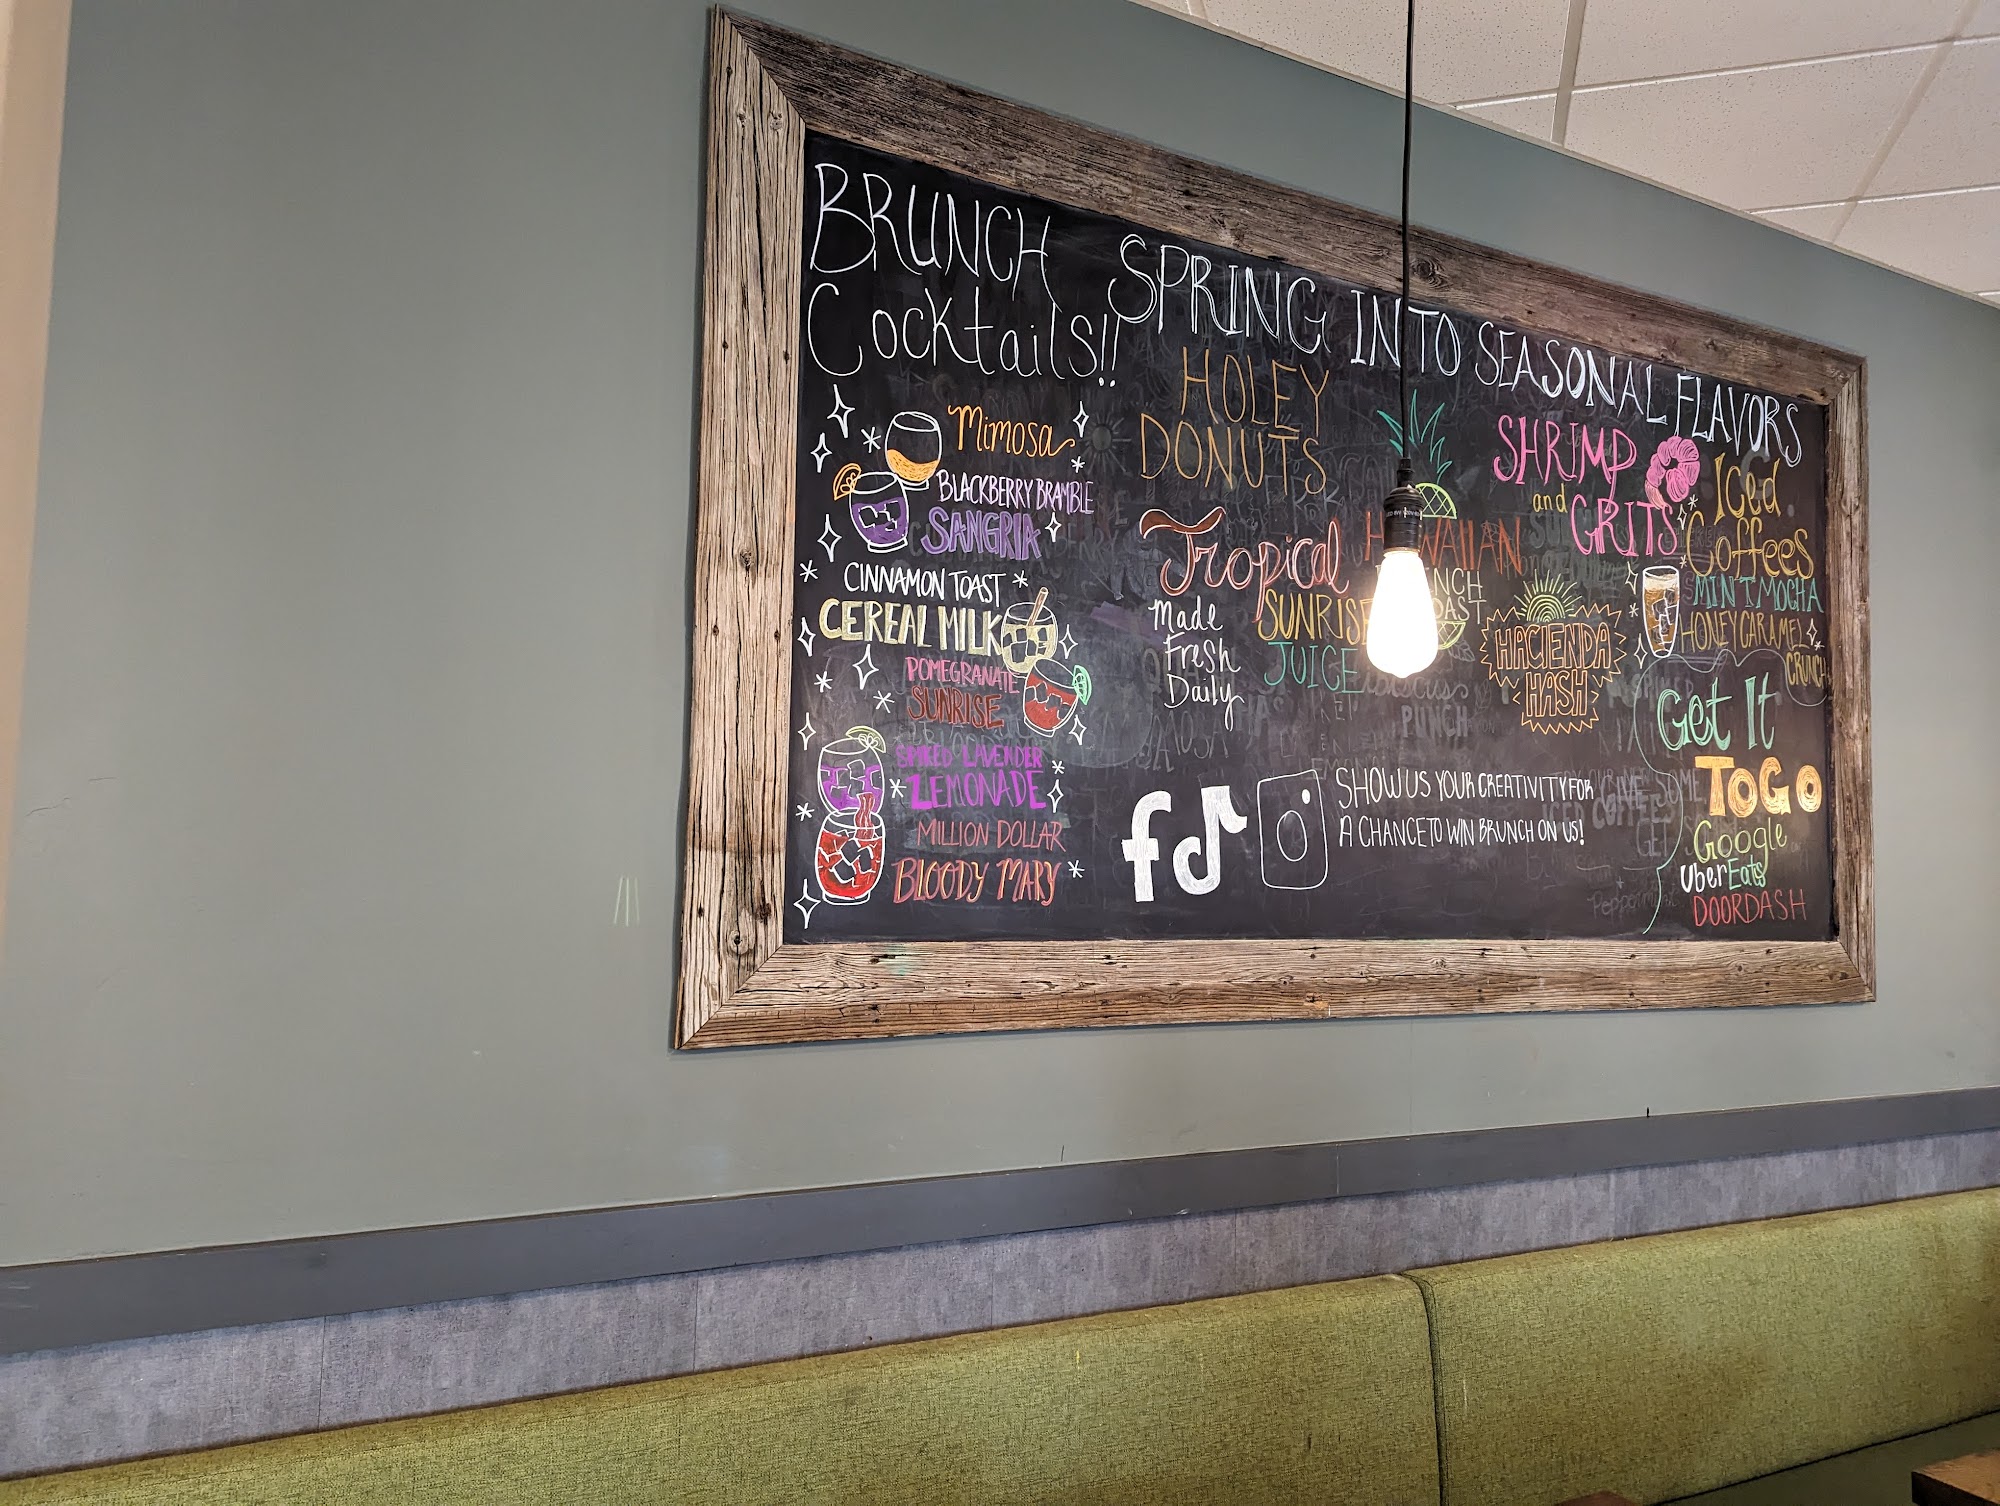 BRUNCH
Cocktails!!
Mimosa
BLACKBERRY BRAMBLE
SANGRIA
CINNAMON TOAST
CEREAL MILK
POMEGRANATE
SUNRISE
SPIKED LAVENDER
LEMONADE
MILLION DOLLAR
BLOODY MARY
SPRING INTO SEASONAL FLAVORS
HOLEY
DONUTS
Tropical
SUNRISE
JUICE
Made
Fresh
Daily
HAWAIIAN
SHRIMP
and
GRITS
HACIENDA
HASH
Iced
Coffees
MINT MOCHA
HONEY CARAMEL
CRUNCH
Get It
ToGo
Google
UberEats
DOORDASH
f
SHOW US YOUR CREATIVITY FOR
A CHANCE TO WIN BRUNCH ON US!